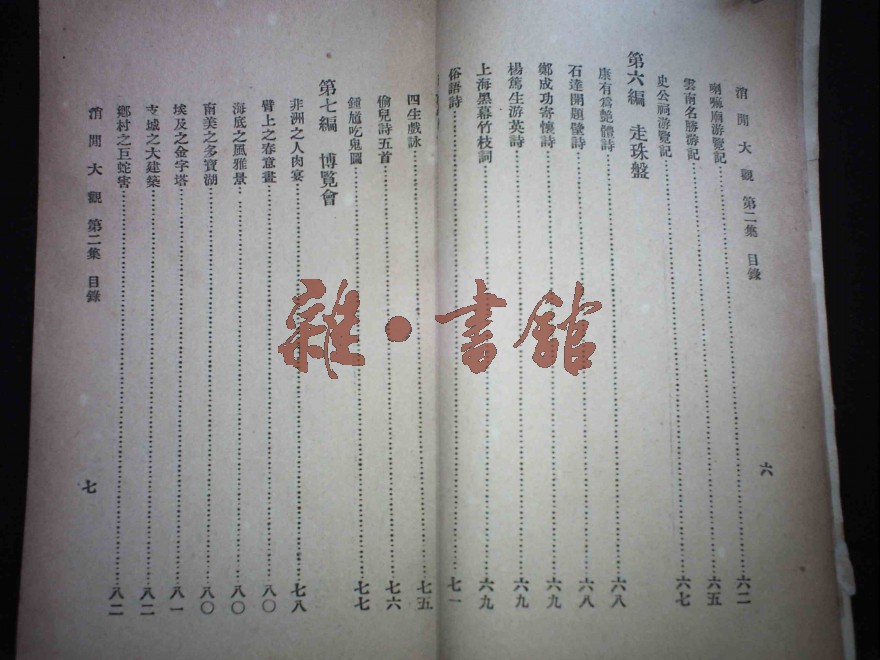 消閒大觀 第二集 目錄
六
喇嘛廟游覽記……六二
雲南名勝游記……六五
史公祠游覽記……六七
第六編 走珠盤
康有爲艶體詩……六八
石達開題壁詩……六八
鄭成功寄懷詩……六九
楊篤生游英詩……六九
上海黑幕竹枝詞……六九
俗語詩……七一
四生戲詠……七五
偷兒詩五首……七六
鍾馗吃鬼圖……七七
第七編 博覽會
非洲之人肉宴……七八
臂上之春意畫……八〇
海底之風雅景……八〇
南美之多寶湖……八〇
埃及之金字塔……八一
支城之大建築……八二
鄉村之巨蛇害……八二
消閒大觀 第二集 目錄
七
雜·書館